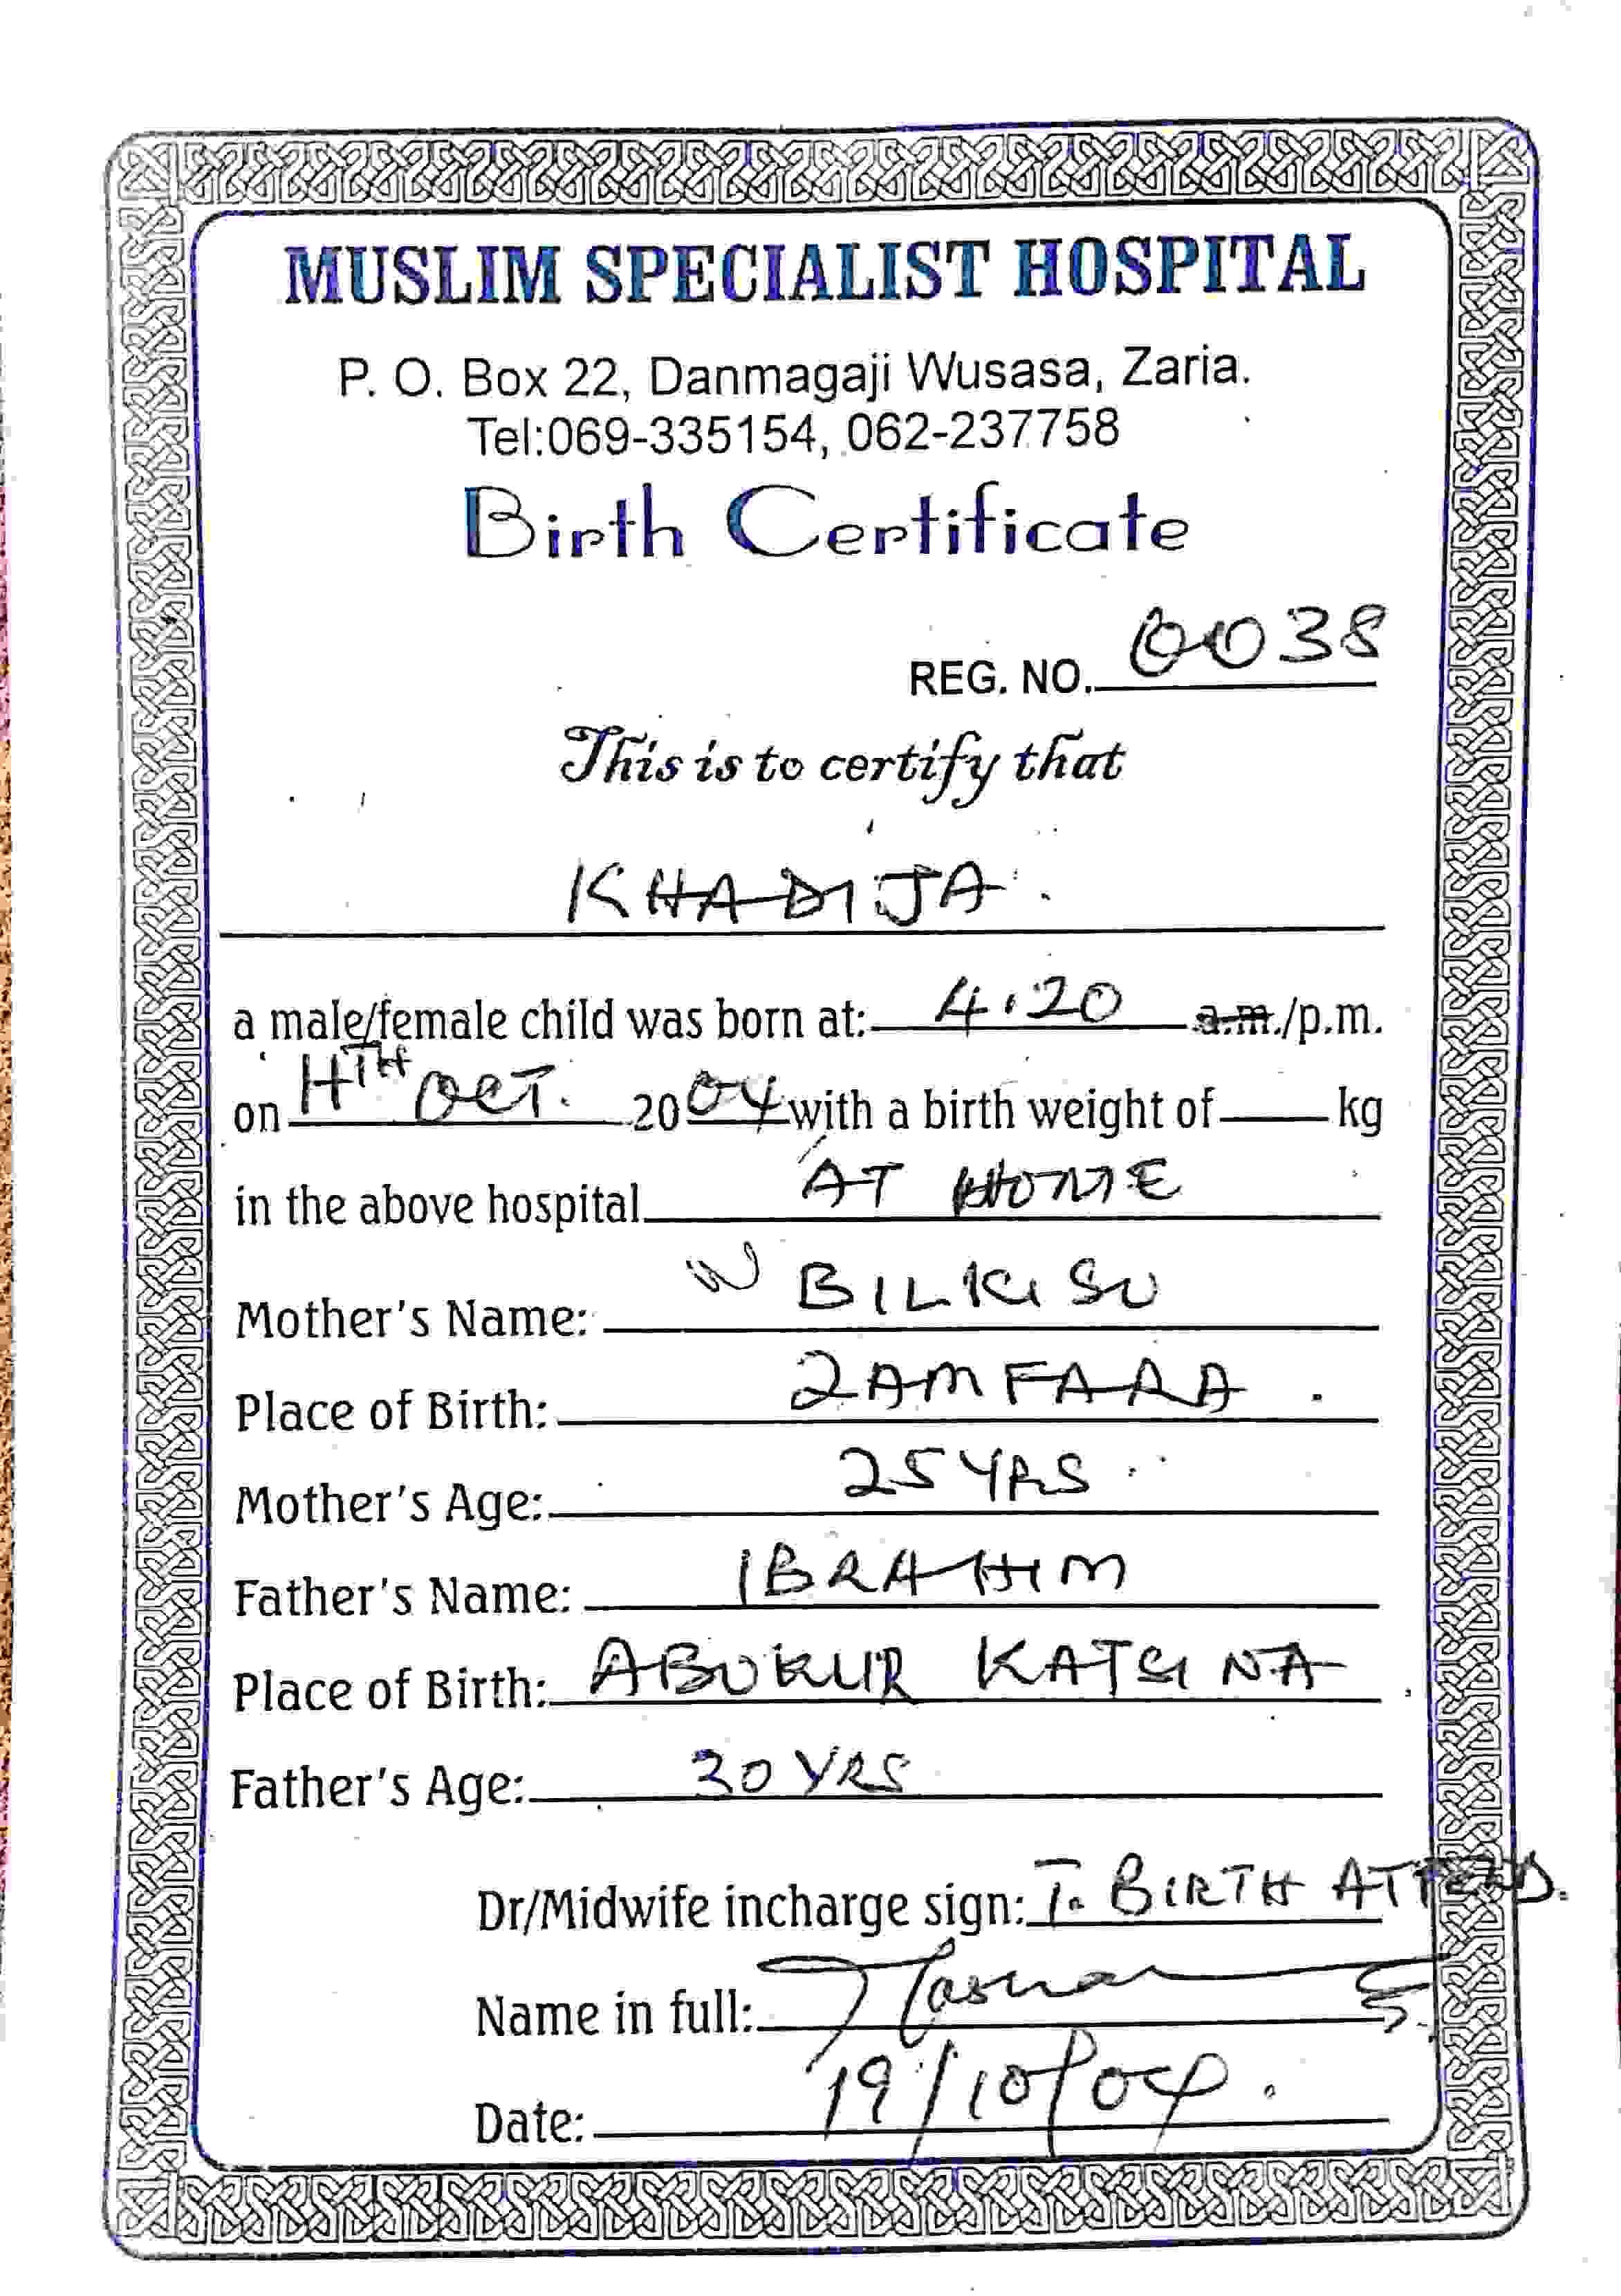 MUSLIM SPECIALIST HOSPITAL
P. O. Box 22, Danmagaji Wusasa, Zaria.
Tel:069-335154, 062-237758
Birth Certificate
REG. NO. 0038
This is to certify that
KHADIJA
a male/female child was born at: 4.20 a.m./p.m.
on OCT. 2004 with a birth weight of kg
in the above hospital AT HOME
Mother's Name: BILKISU
Place of Birth: ZAMFARA
Mother's Age: 25 YRS
Father's Name: IBRAHIM
Place of Birth: ABUKUR KATSINA
Father's Age: 30 YRS
Dr/Midwife incharge sign: T. BIRTH ATTEND.
Name in full:
Date: 19/10/04